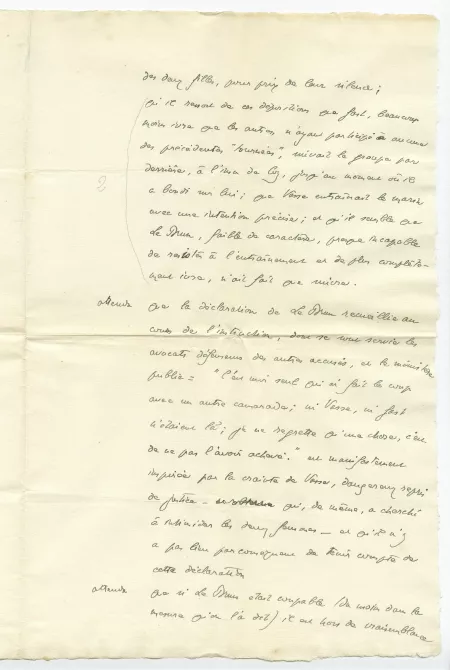 des deux filles, pour prix de leur silence ;
qu'il ressort de ces dépositions que fast, beaucoup
moins ivre que les autres, n'ayant participé à aucune
des précédentes "tournées", suivait le groupe par
derrière, à l'insu de lui, jusqu'au moment où il
a bondi sur lui ; que Vesse entraînait le marin
avec une intention précise ; et qu'il semble que
Le Drun, faible de caractère, presque incapable
de résister à l'entraînement et de plus complète-
ment ivre, n'ait fait que suivre.
attendu que la déclaration de Le Drun recueillie au
cours de l'instruction, dont se sont servis les
avocats défenseurs des autres accusés, et le ministère
public = "C'est moi seul qui ai fait le coup
avec un autre camarade ; ni Vesse, ni fast
n'étaient là ; je ne regrette qu'une chose, c'est
de ne pas l'avoir achevé." est manifestement
inspirée par la crainte de Vesse, dangereux repris
de justice — qui, de même, a cherché
à intimider les deux femmes — et qu'il n'y
a pas lieu par conséquent de tenir compte de
cette déclaration
attendu que si Le Drun était coupable (du moins dans la
mesure qu'on l'a dit) il est hors de vraisemblance